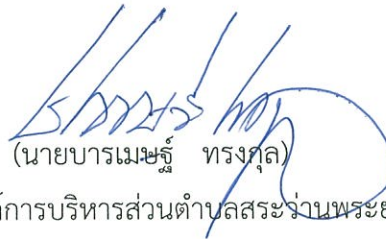 (นายบารเมษฐ์ ทรงกุล)
การบริหารส่วนตำบลสระว่านพระย